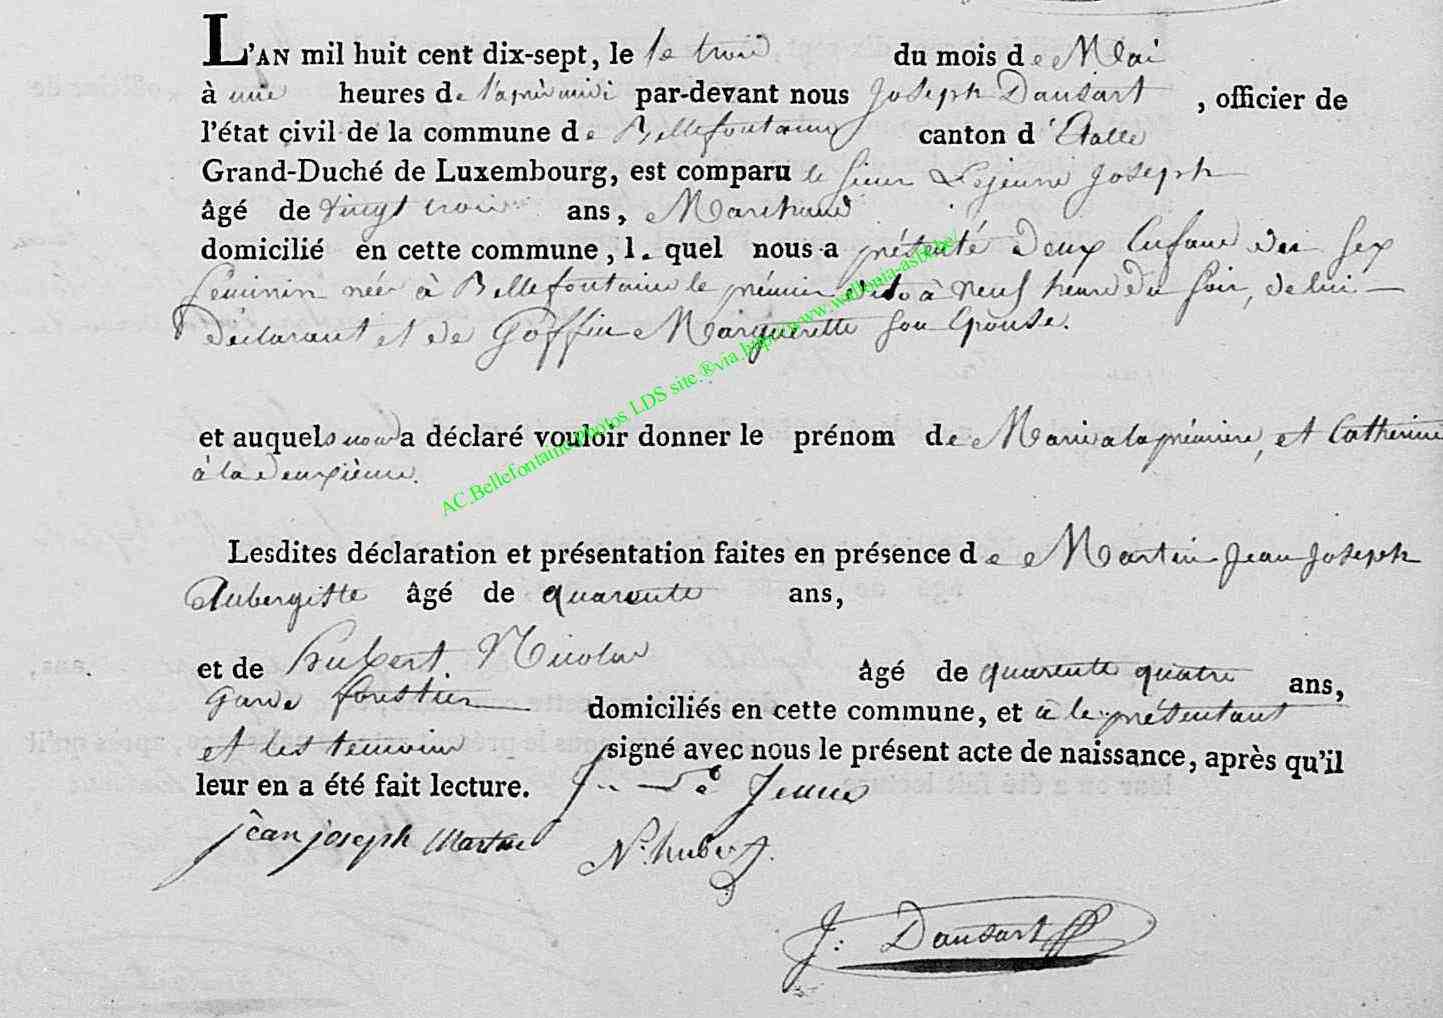 L'AN mil huit cent dix-sept, le le trois du mois de Mai
à une heures de l'après midi par-devant nous Joseph Dansart, officier de
l'état çivil de la commune de Bellefontaine canton d'Etalle
Grand-Duché de Luxembourg, est comparu le sieur Lejeune Joseph
âgé de vingt trois ans, Marchand
domicilié en cette commune, l. quel nous a présenté deux Enfans du sex
feminin née à Bellefontaine le prémier dito à neuf heure du soir, de lui
déclarant et de Goffin Margueritte son Epouse.
et auquels nous a déclaré vouloir donner le prénom de Marie a la prémiere, et Catherine
à la deuxième.
Lesdites déclaration et présentation faites en présence de Martin Jean Joseph
Aubergiste âgé de quarente ans,
et de hubert Nicolas âgé de quarente quatre ans,
garde forestier domiciliés en cette commune, et a le présentant
et les temoins signé avec nous le présent acte de naissance, après qu'il
leur en a été fait lecture. Jeune
jean joseph Martin N. hubert
J: Dansart
AC.Bellefontaine photos LDS site.®via http://www.wallonia-asbl.be/